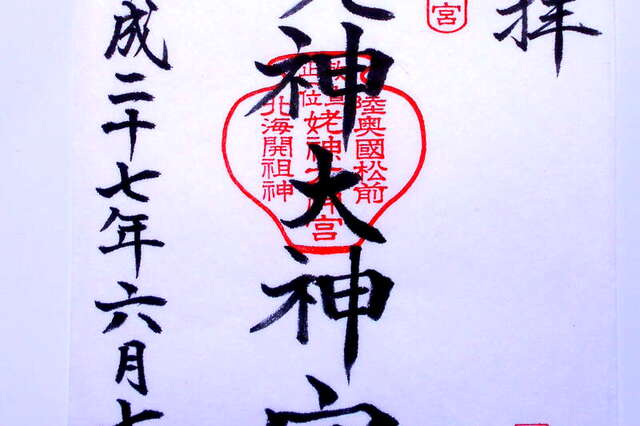 拝
宮
神大神宮
陸奥國松前
正一位
姥神大神宮
北海開祖神
成二十七年六月七